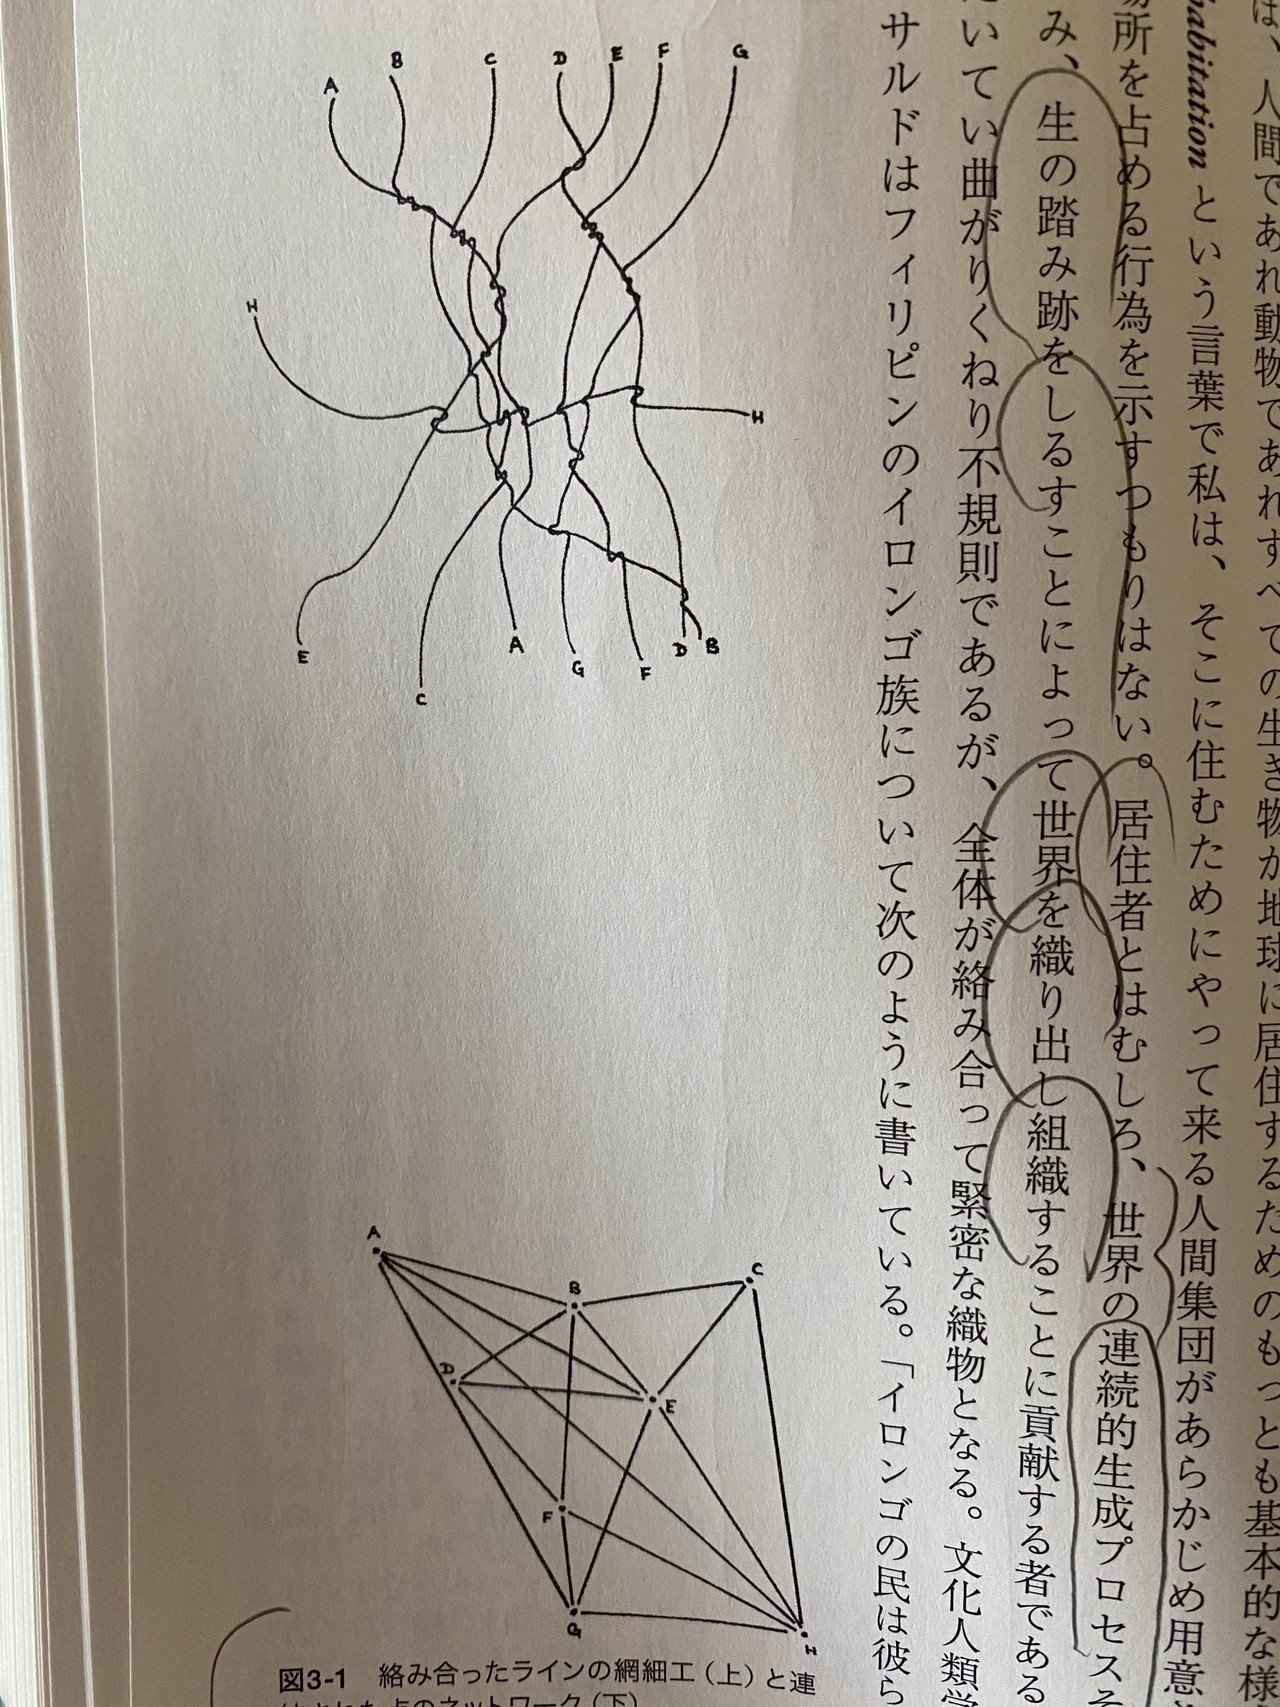 は、人間であれ動物であれすべての生き物が地球に居住するためのもっとも基本的な様
habitation という言葉で私は、そこに住むためにやって来る人間集団があらかじめ用意
場所を占める行為を示すつもりはない。居住者とはむしろ、世界の連続的生成プロセスそ
み、生の踏み跡をしるすことによって世界を織り出し組織することに貢献する者である
いてい曲がりくねり不規則であるが、全体が絡み合って緊密な織物となる。文化人類学
サルドはフィリピンのイロンゴ族について次のように書いている。「イロンゴの民は彼ら
A
B
C
D
E
F
G
H
H
E
C
A
G
F
D
B
A
B
C
D
E
F
G
H
図3-1 絡み合ったラインの網細工(上)と連
点のネットワーク(下)